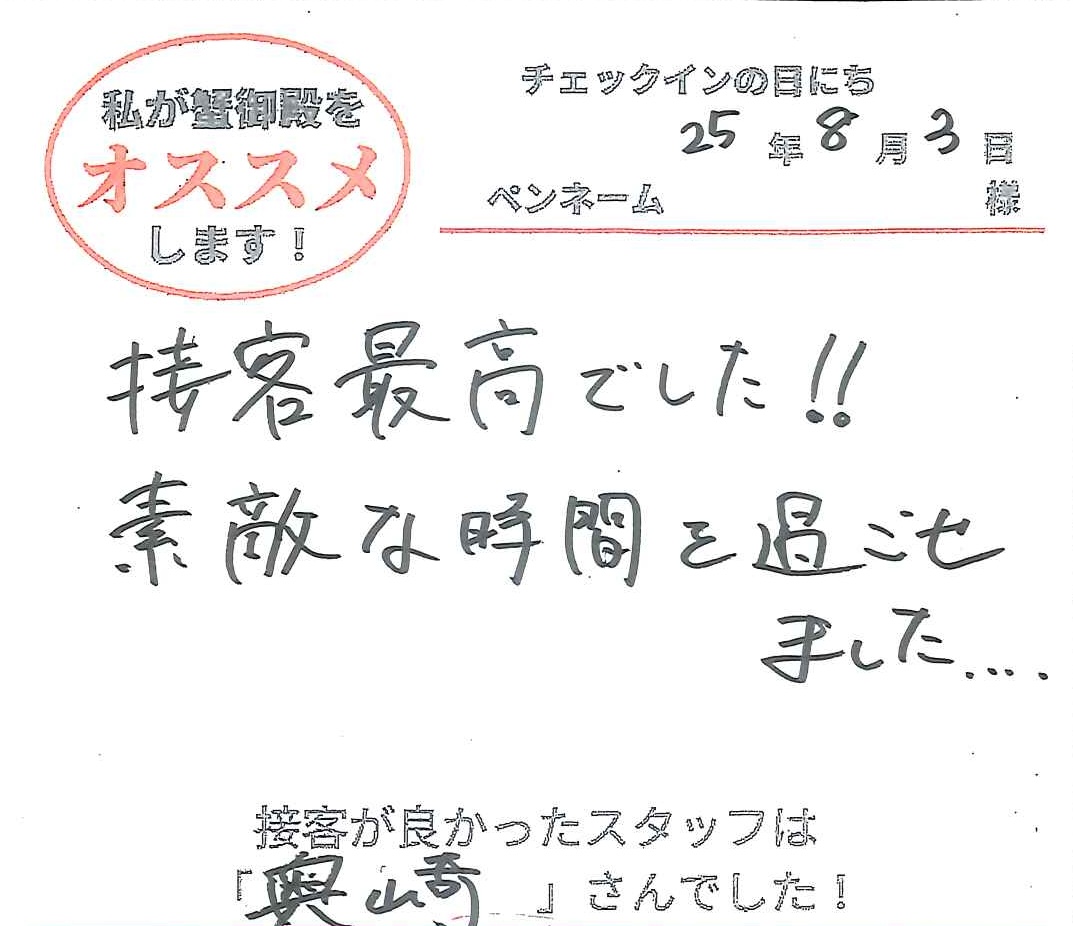 私が蟹御殿を
オススメ
します！
チェックインの日にち
25年8月3日
ペンネーム 様
接客最高でした!!
素敵な時間を過ごせ
ました....
接客が良かったスタッフは
「奥崎」さんでした！